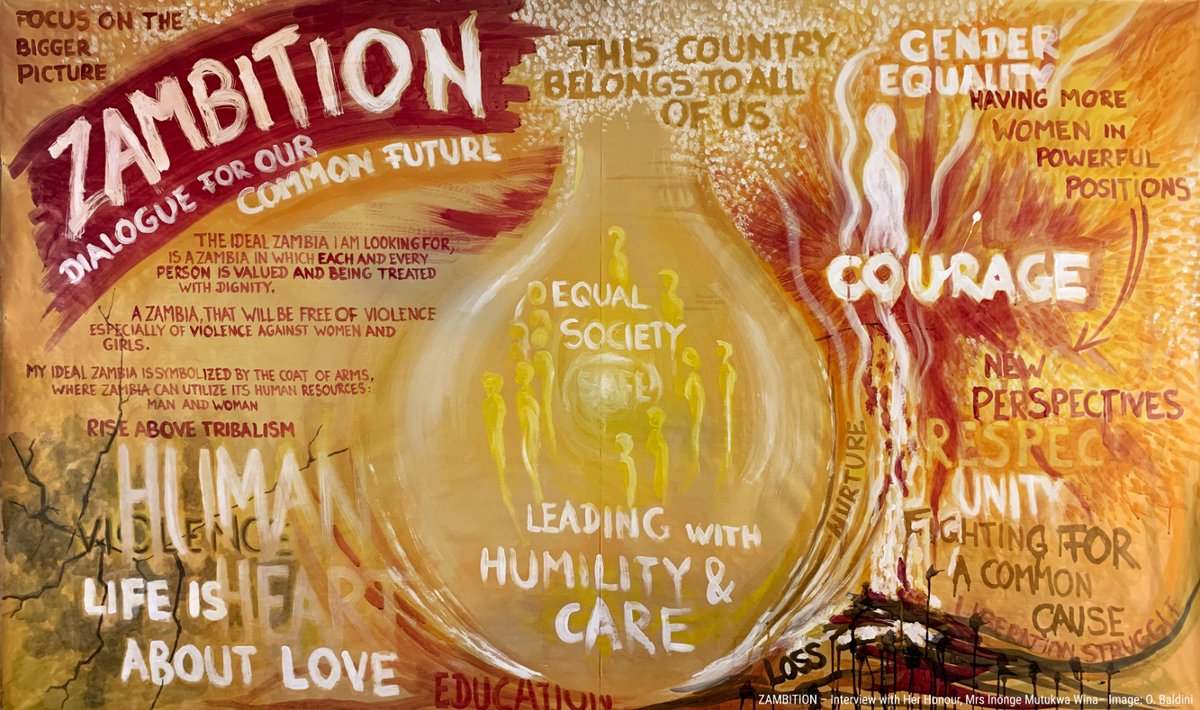 FOCUS ON THE
BIGGER
PICTURE
ZAMBITION
DIALOGUE FOR OUR
COMMON FUTURE
THE IDEAL ZAMBIA I AM LOOKING FOR,
IS A ZAMBIA IN WHICH EACH AND EVERY
PERSON IS VALUED AND BEING TREATED
WITH DIGNITY.
A ZAMBIA, THAT WILL BE FREE OF VIOLENCE
ESPECIALLY OF VIOLENCE AGAINST WOMEN AND
GIRLS.
MY IDEAL ZAMBIA IS SYMBOLIZED BY THE COAT OF ARMS,
WHERE ZAMBIA CAN UTILIZE ITS HUMAN RESOURCES:
MAN AND WOMAN
RISE ABOVE TRIBALISM
HUMAN
VIOLENCE
HEART
LIFE IS
ABOUT LOVE
THIS COUNTRY
BELONGS TO ALL
OF US
EQUAL
SOCIETY
LEADING WITH
HUMILITY &
CARE
EDUCATION
GENDER
EQUALITY
HAVING MORE
WOMEN IN
POWERFUL
POSITIONS
COURAGE
NEW
PERSPECTIVES
NURTURE
RESPECT
UNITY
FIGHTING FOR
A COMMON
CAUSE
LIBERATION STRUGGLE
LOSS
ZAMBITION – Interview with Her Honour, Mrs Inonge Mutukwa Wina - Image: O. Baldini